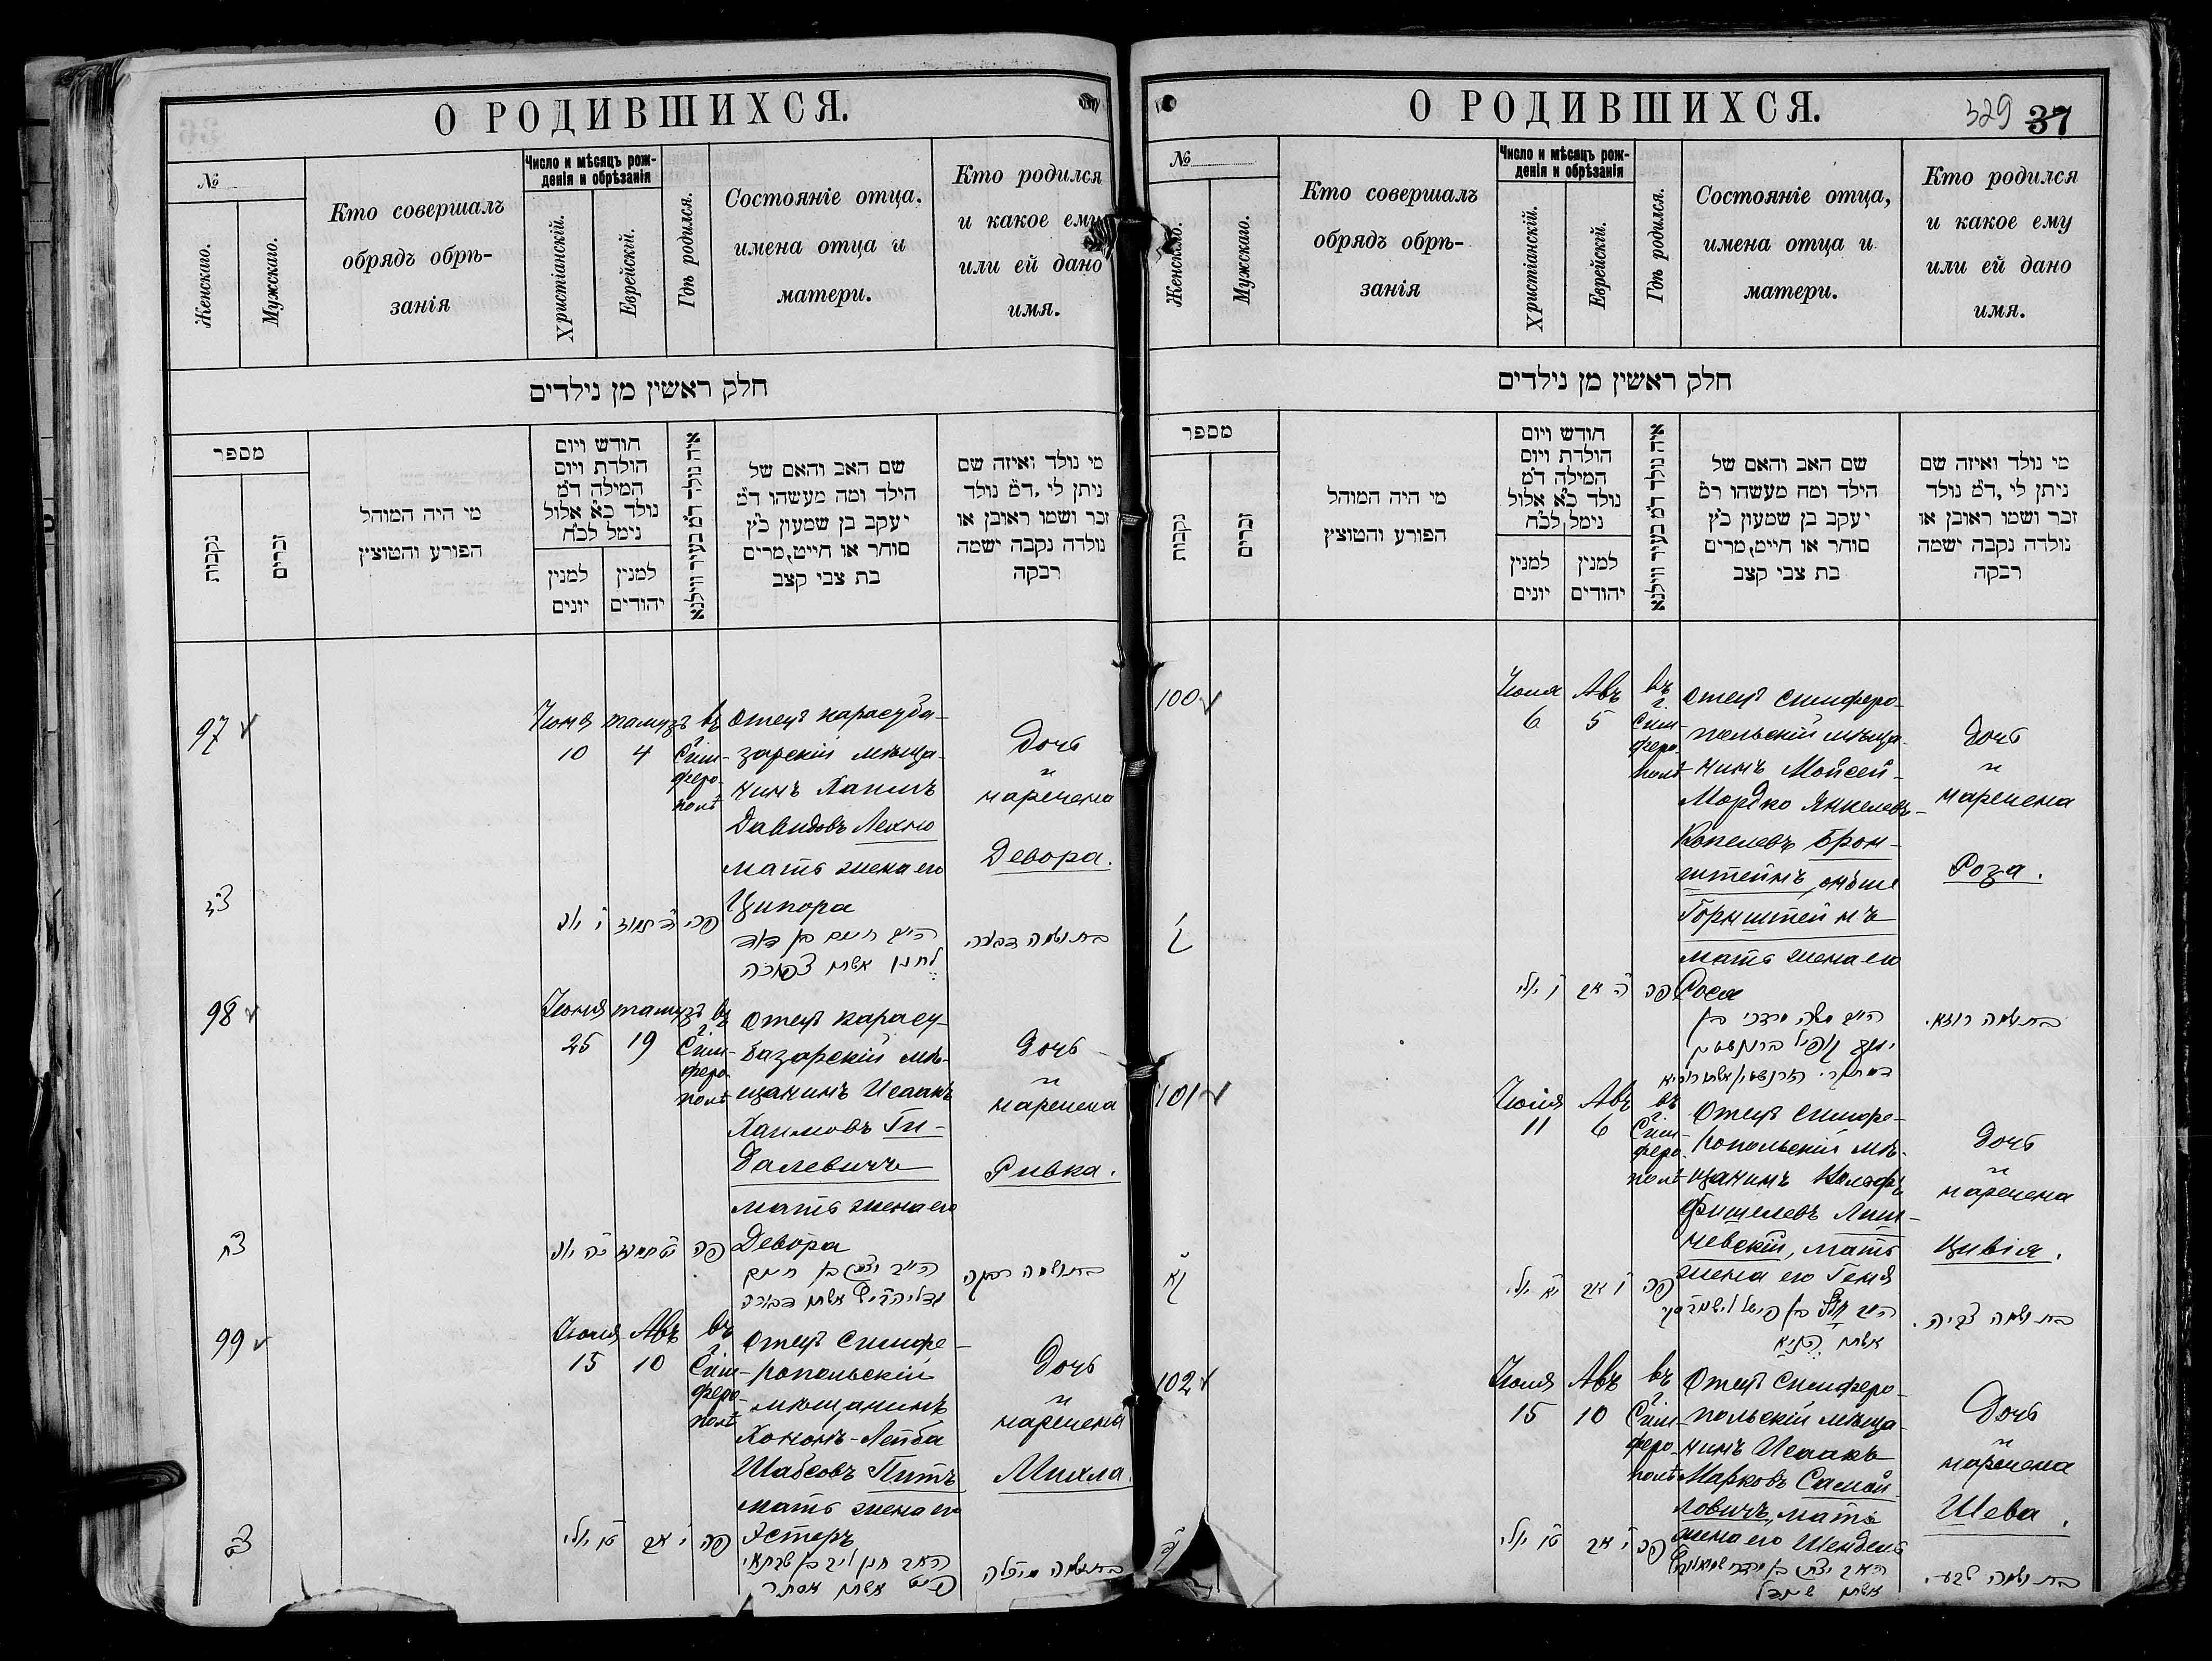 О РОДИВШИХСЯ.
№
Женскаго.
Мужскаго.
Кто совершалъ
обрядъ обрѣ-
занія
Число и мѣсяцъ рож-
денія и обрѣзанія
Христіанскій.
Еврейскій.
Гдѣ родился.
Состояніе отца.
имена отца и
матери.
Кто родился
и какое ему
или ей дано
имя.
חלק ראשין מן נילדים
מספר
נקבות
זכרים
מי היה המוהל
הפורע והמוצץ
חודש ויום
הולדת ויום
המילה ד״מ
נולד כ״א אלול
נימל לכ״ח
למנין
יונים
למנין
יהודים
איה נולד ד״מ בעיר ווילנא
שם האב והאם של
הילד ומה מעשהו ד״מ
יעקב בן שמעון כ״ץ
סוחר או חייט, מרים
בת צבי קצב
מי נולד ואיזה שם
ניתן לי, ד״מ נולד
זכר ושמו ראובן או
נולדה נקבה ישמה
רבקה
97
Іюня
10
тамузъ
4
въ
г.
Сим-
феро-
полѣ
отецъ карасуба-
зарскій мѣща-
нинъ Хаимъ
Давидовъ Лехно
мать жена его
Ципора
Дочь
и
наречена
Девора.
צ״ז
פה
ד תמוז
י יוני
חיים בן דוד
לחנו אשתו צפורה
בת ושמה דבורה
98
Іюня
25
тамузъ
19
въ
г.
Сим-
феро-
полѣ
Отецъ карасу-
базарскій мѣ-
щанинъ Исаакъ
Хаимовъ Ги-
далевичъ
мать жена его
Девора
Дочь
и
наречена
Ривка.
צ״ח
כה יוני
יט תמוז
פה
יצחק בן חיים
אשתו דבורה
בת ושמה רבקה
99
Іюля
15
Авъ
10
въ
г.
Сим-
феро-
полѣ
Отецъ симфе-
ропольскій
мѣщанинъ
Хононъ-Лейба
Шабсовъ Питъ
мать жена его
Эстеръ
Дочь
и
наречена
Михля.
צ״ט
טו יולי
י אב
פה
חנן ליב בן שבתאי
פיט אשתו אסתר
בת ושמה מיכלה
О РОДИВШИХСЯ.
329 37
№
Женскаго.
Мужскаго.
Кто совершалъ
обрядъ обрѣ-
занія
Число и мѣсяцъ рож-
денія и обрѣзанія
Христіанскій.
Еврейскій.
Гдѣ родился.
Состояніе отца,
имена отца и
матери.
Кто родился
и какое ему
или ей дано
имя.
חלק ראשין מן נילדים
מספר
נקבות
זכרים
מי היה המוהל
הפורע והמוצץ
חודש ויום
הולדת ויום
המילה ד״מ
נולד כ״א אלול
נימל לכ״ח
למנין
יונים
למנין
יהודים
איה נולד ד״מ בעיר ווילנא
שם האב והאם של
הילד ומה מעשהו ד״מ
יעקב בן שמעון כ״ץ
סוחר או חייט, מרים
בת צבי קצב
מי נולד ואיזה שם
ניתן לי, ד״מ נולד
זכר ושמו ראובן או
נולדה נקבה ישמה
רבקה
100
Іюля
6
Авъ
5
въ
г.
Сим-
феро-
полѣ
Отецъ симферо-
польскій мѣща-
нинъ Мойсей-
Мордко Янкелевъ-
Копелевъ Брон-
штейнъ, онъже
Горнштейнъ
мать жена его
Сося
Дочь
и
наречена
Роза.
ק
ו יולי
ה אב
פה
משה מרדכי בן
קופיל ברונשטיין
בת ושמה רוזא.
101
Іюля
11
Авъ
6
въ
г.
Сим-
феро-
полѣ
Отецъ симфе-
ропольскій мѣ-
щанинъ Вольфъ
Фишелевъ Лиш-
невскій, мать
жена его Геня
Дочь
и
наречена
Цивія.
קא
יא יולי
ו אב
פה
בן פישל
אשתו העניא
בת ושמה צביה.
102
Іюля
15
Авъ
10
въ
г.
Сим-
феро-
полѣ
Отецъ Симферо-
польскій мѣща-
нинъ Исаакъ
Марковъ Самой-
ловичъ, мать
жена его Шендель
Дочь
и
наречена
Шева.
קב
טו יולי
י אב
פה
יצחק בן
אשתו שינדל
בת ושמה שבע.